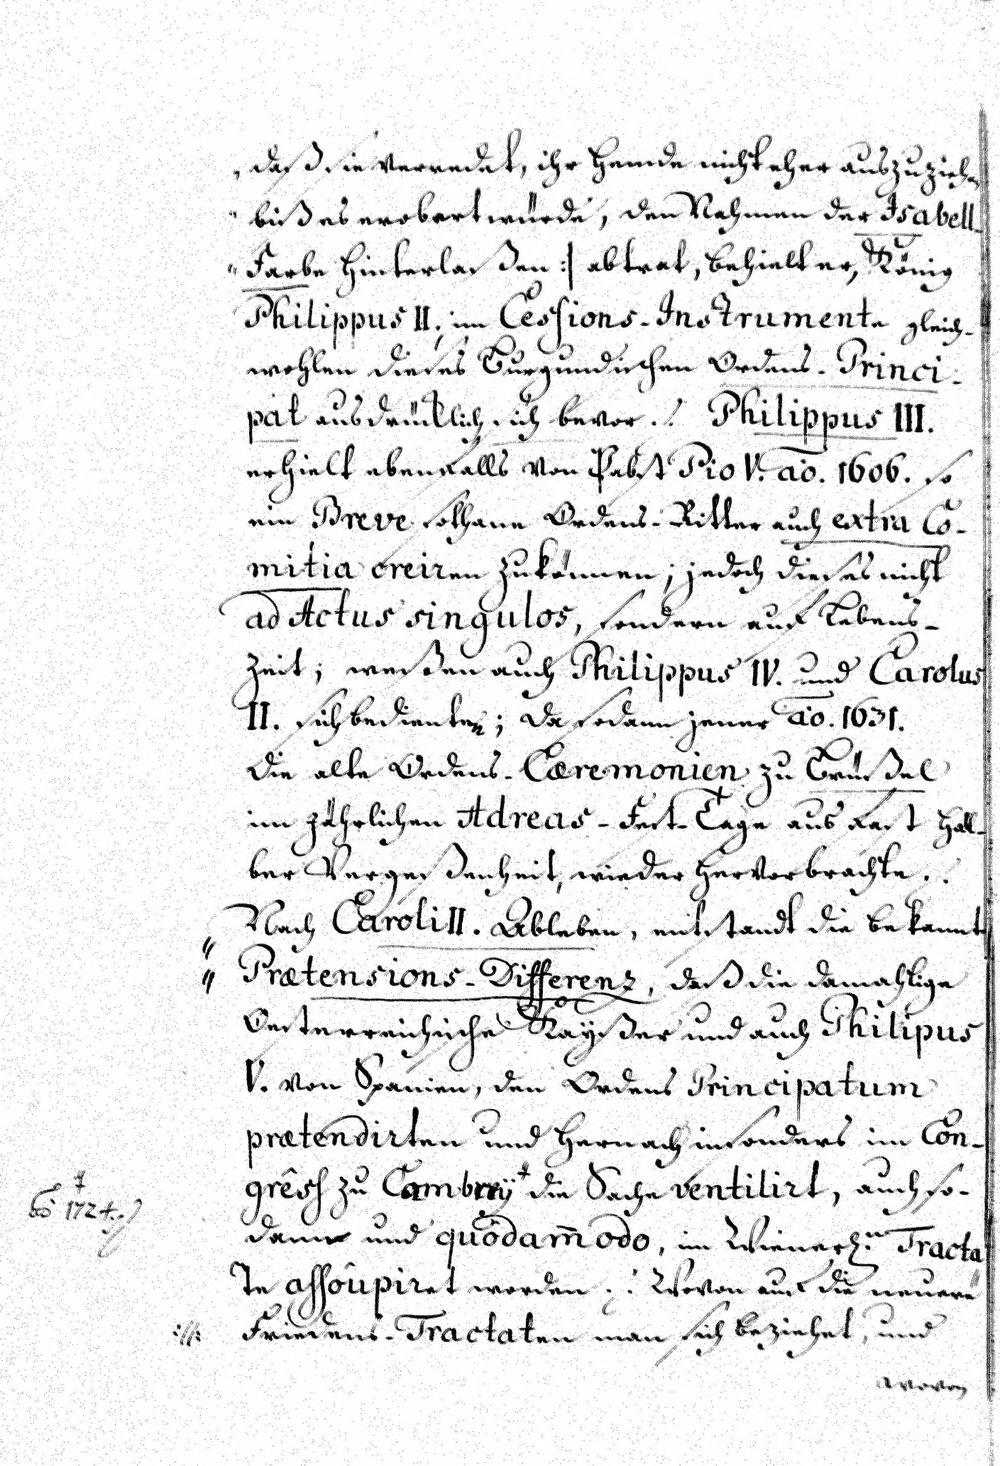 „ daß sie verredet, ihr Hemde nicht eher auszuziehen
„ biß es erobert würde, den Nahmen der Isabell-
„ Farbe hinterlaßen :| abtrat, behielt er, König
Philippus II, im Cessions-Instrumente gleich-
wohlen dieses Burgundischen Ordens-Princi-
pat ausdrücklich sich bevor ./. Philippus III.
erhielt ebenfalls von Pabst Pio V. ao. 1606. so
ein Breve sothane Ordens-Ritter auch extra Co-
mitia creiren zu können; jedoch dieses nicht
ad Actus singulos, sondern auf Lebens-
Zeit; weßen auch Philippus IV. und Carolus
II. sich bedienten; da sodann jener ao. 1631.
die alte Ordens-Cæremonien zu Brüßel
im jährlichen Adreas-Fest-Tage aus fast hal-
ber Vergeßenheit, wieder hervorbrachte ./.
Nach Caroli II. Ableben, entstandt die bekannte
„ Prætensions-Differenz, daß die damahlige
„ Oesterreichische Kayßer und auch Philipus
V. von Spanien, den Ordens Principatum
prætendirten und hernach insonders im Con-
gress zu Cambray † die Sache ventilirt, auch so-
† ao 1724 ./.
dann und quodammodo, im Wienerln. Tracta
te assoupiret worden ./: Wovon auf die neuere
:///: Friedens-Tractaten man sich beziehet, und
wovon